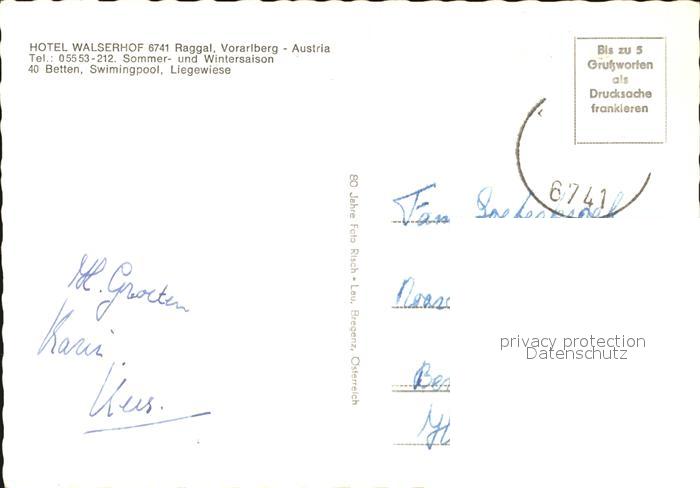 HOTEL WALSERHOF 6741 Raggal, Vorarlberg - Austria
Tel.: 05553-212. Sommer- und Wintersaison
40 Betten, Swimingpool, Liegewiese
Bis zu 5
Grußworten
als
Drucksache
frankieren
6741
80 Jahre Foto Risch • Lau, Bregenz, Österreich
Fam
privacy protection
Datenschutz
H. Groeten
Karin
Kees.